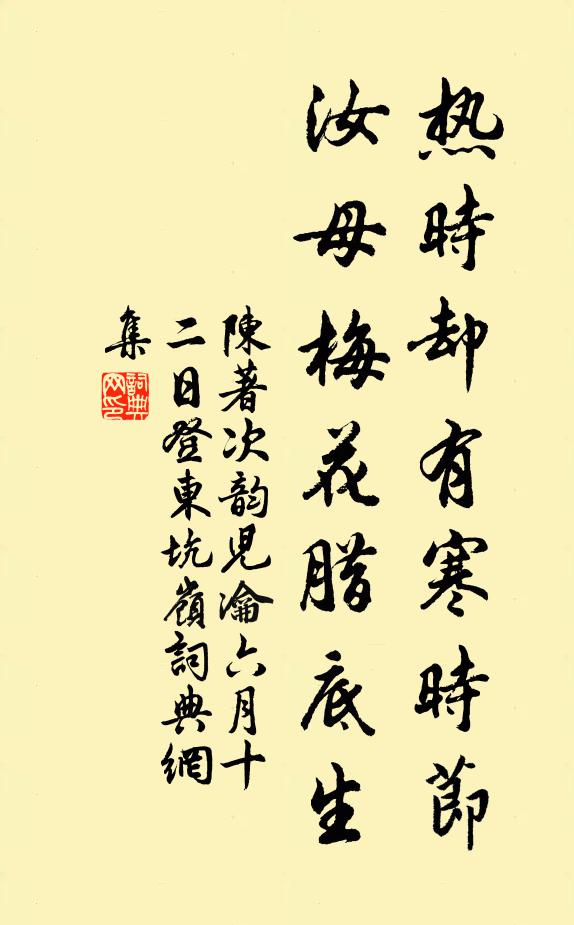 热時却有寒時節
汝母梅花腊底生
陳著次韵児瀹六月十
二日登東坑嶺詞典網
集
詞典
网印